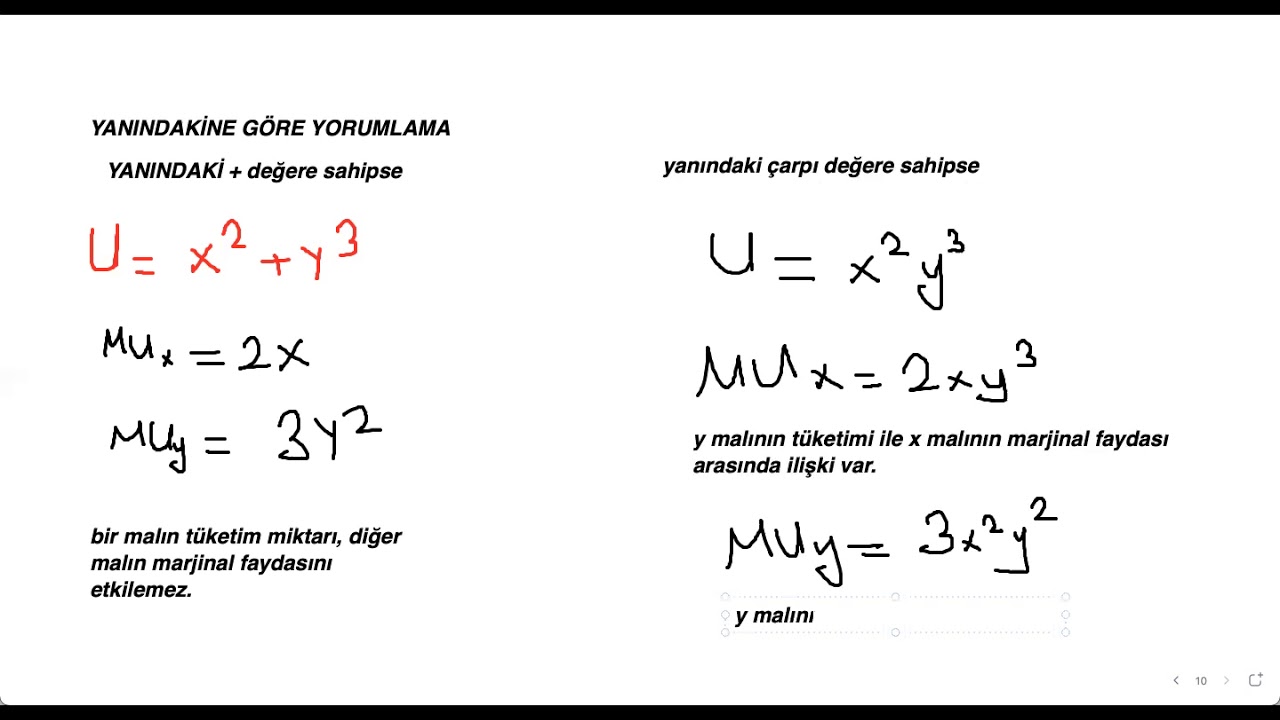 YANINDAKİNE GÖRE YORUMLAMA
YANINDAKİ + değere sahipse
U = x² + y³
MUx = 2x
MUy = 3y²
bir malın tüketim miktarı, diğer
malın marjinal faydasını
etkilemez.
yanındaki çarpı değere sahipse
U = x²y³
MUx = 2xy³
y malının tüketimi ile x malının marjinal faydası
arasında ilişki var.
MUy = 3x²y²
y malını
10